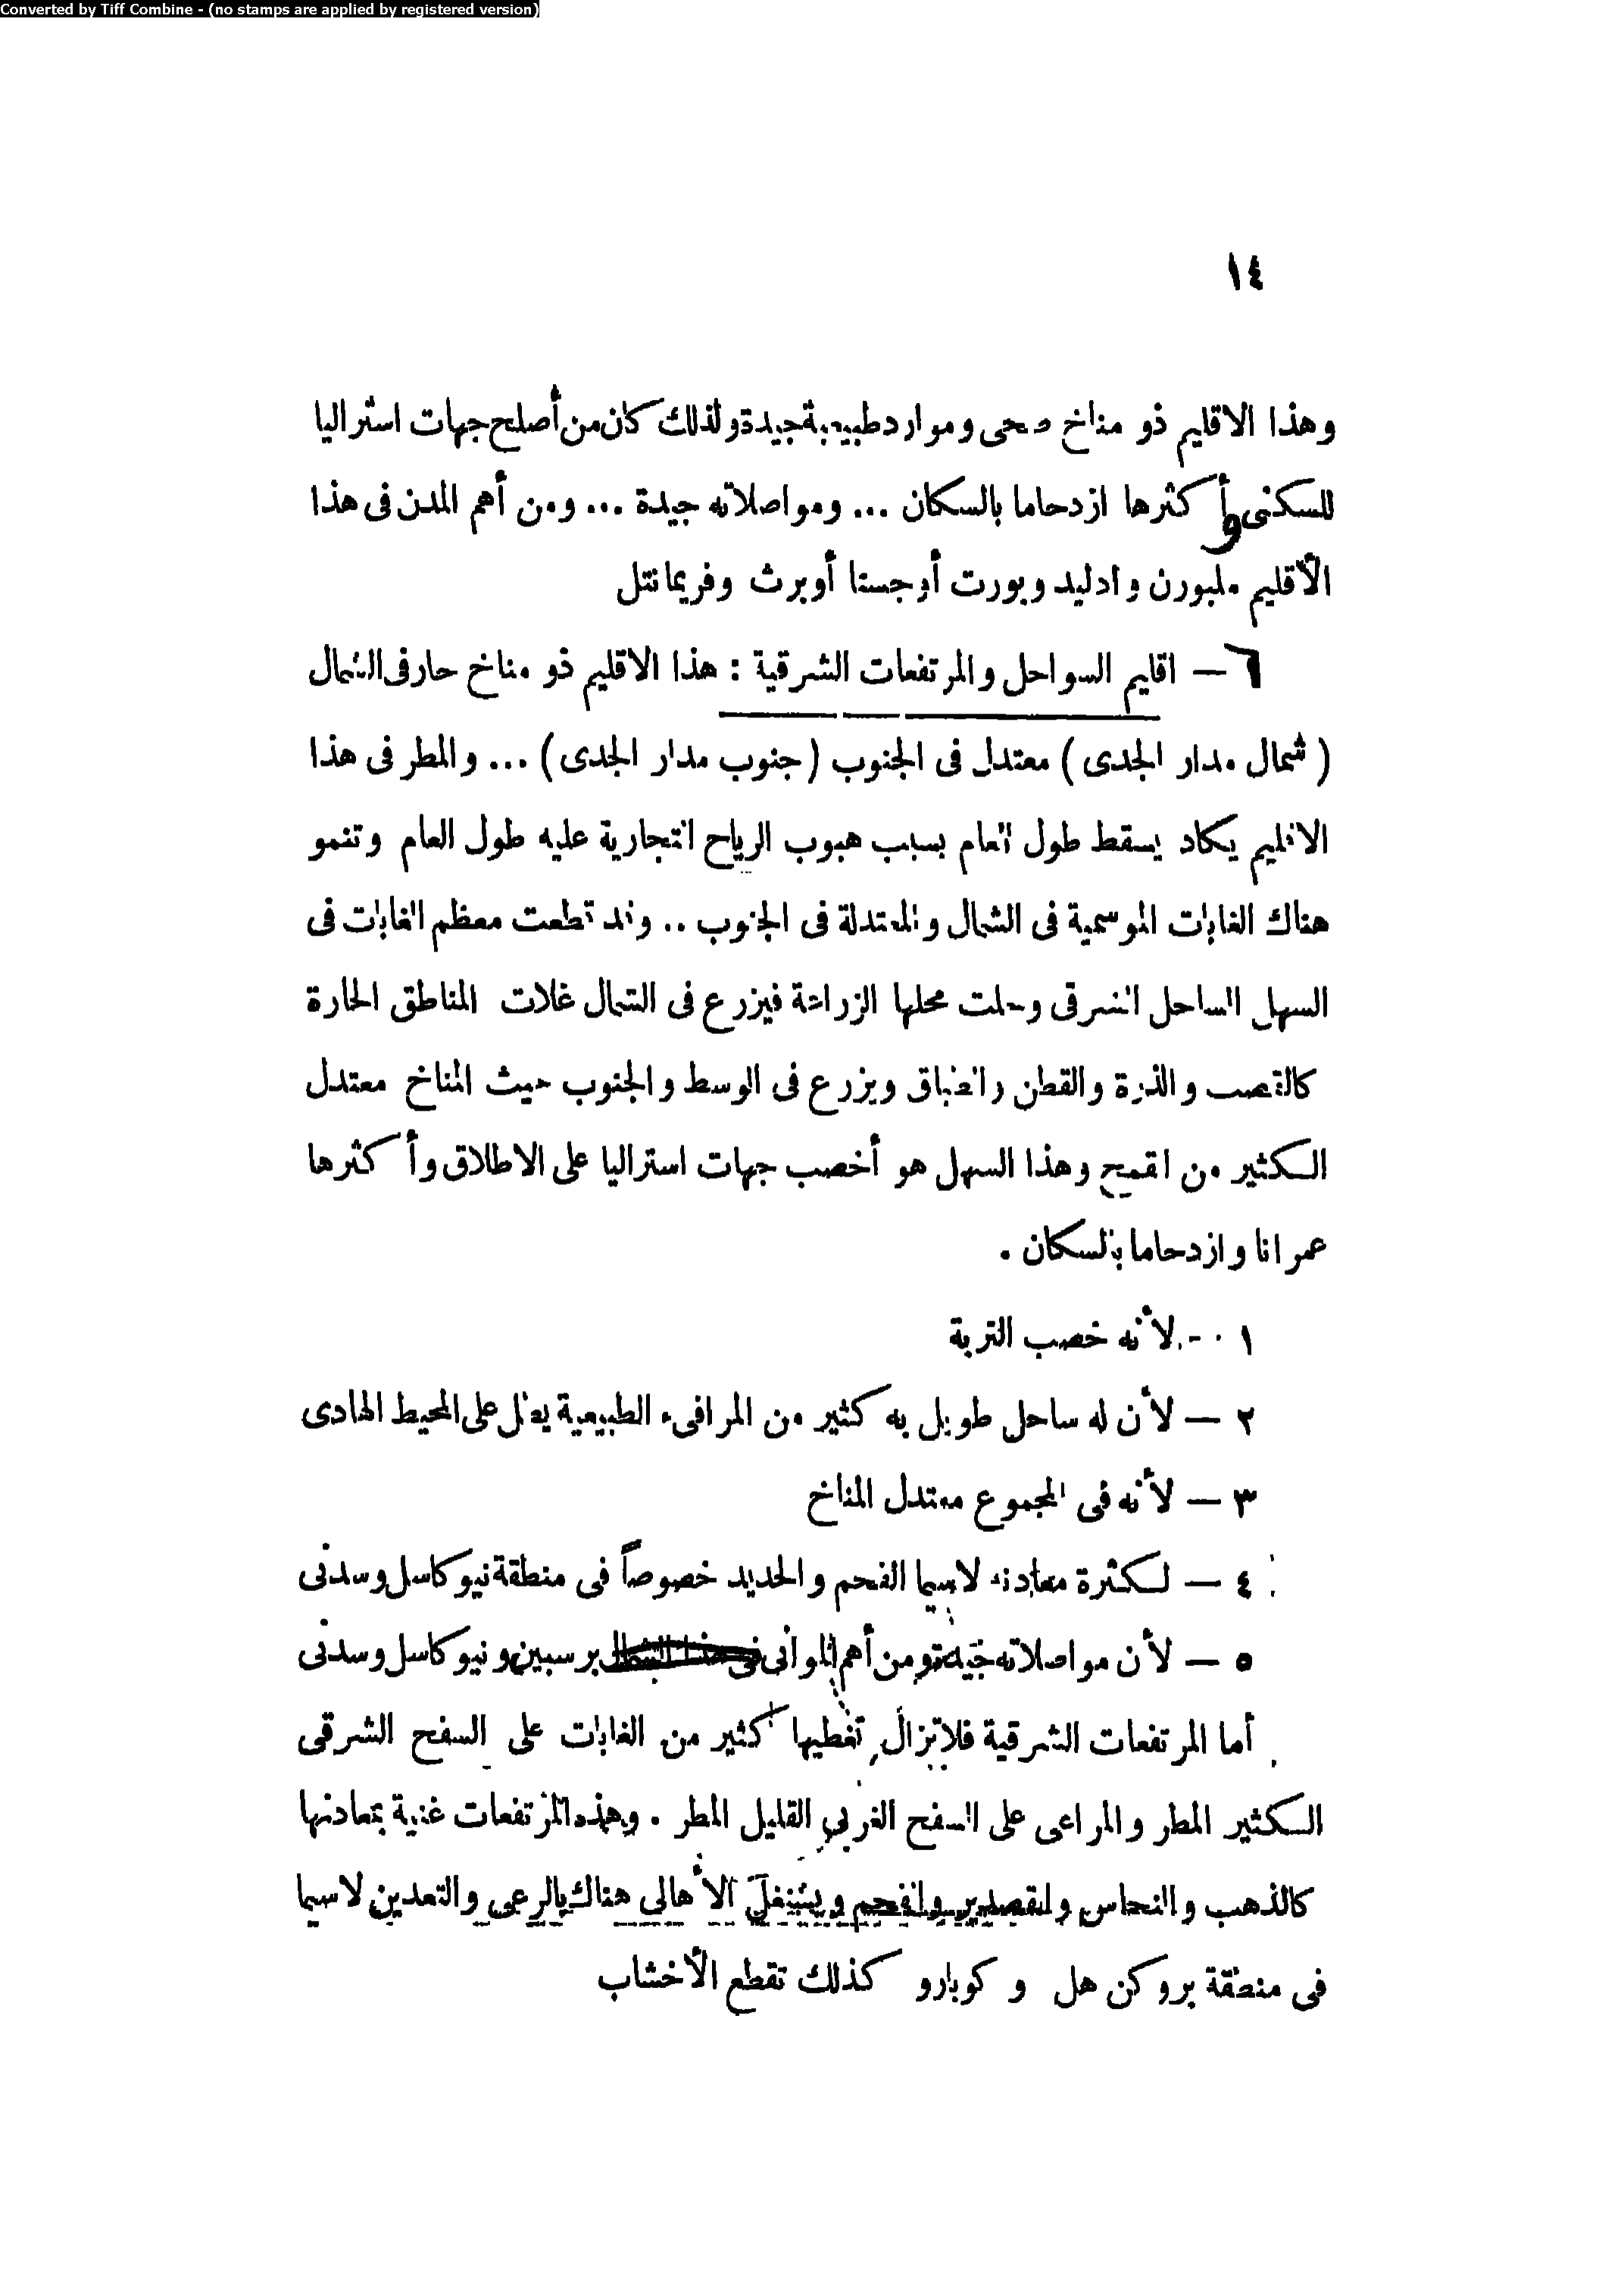 Converted by Tiff Combine - (no stamps are applied by registered version)
١٤
وهذا الاقليم ذو مناخ صحى وموارد طبيعية جيدة ولذلك كان من أصلح جهات استراليا
للسكنى وأكثرها ازدحاما بالسكان ... ومواصلاته جيدة ... ومن أهم المدن فى هذا
الأقليم ملبورن وادليد وبورت أوجستا أوبرث وفريمانتل
٦ — اقليم السواحل والمرتفعات الشرقية : هذا الاقليم ذو مناخ حار فى الشمال
( شمال مدار الجدى ) معتدل فى الجنوب ( جنوب مدار الجدى ) ... والمطر فى هذا
الاقليم يكاد يسقط طول العام بسبب هبوب الرياح التجارية عليه طول العام وتنمو
هناك الغابات الموسمية فى الشمال والمعتدلة فى الجنوب .. وقد قطعت معظم الغابات فى
السهل الساحل الشرقى وحلت محلها الزراعة فيزرع فى الشمال غلات المناطق الحارة
كالقصب والذرة والقطن والطباق ويزرع فى الوسط والجنوب حيث المناخ معتدل
الكثير من القمح وهذا السهل هو أخصب جهات استراليا على الاطلاق وأكثرها
عمرانا وازدحاما بالسكان .
١ - لأنه خصب التربة
٢ — لأن له ساحل طويل به كثير من المرافىء الطبيعية يطل على المحيط الهادى
٣ — لأنه فى المجموع معتدل المناخ
٤ — لكثرة معادنه لاسيما الفحم والحديد خصوصاً فى منطقة نيوكاسل وسدنى
٥ — لأن مواصلاته جيدة ومن أهم الموانى برسبين ونيوكاسل وسدنى
أما المرتفعات الشرقية فلا تزال تغطيها كثير من الغابات على السفح الشرقى
الكثير المطر والمراعى على السفح الغربى القليل المطر . وهذه المرتفعات غنية بمعادنها
كالذهب والنحاس والقصدير والفحم ويشتغل الأهالى هناك بالرعى والتعدين لاسيما
فى منطقة بروكن هل و كوبارو كذلك تقطع الأخشاب